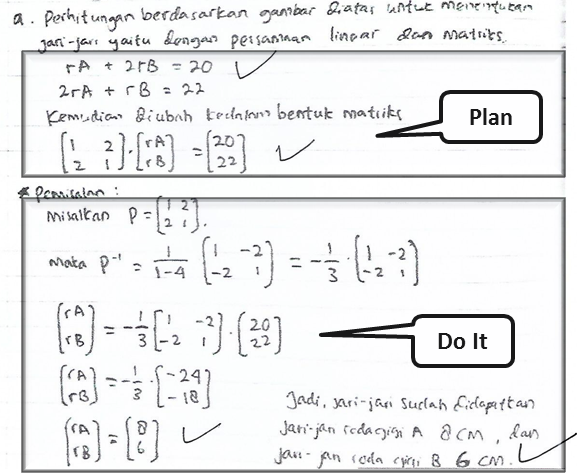 a. Perhitungan berdasarkan gambar diatas untuk menentukan
jari-jari yaitu dengan persamaan linear dan matriks.
rA + 2rB = 20 ✓
2rA + rB = 22
Kemudian diubah kedalam bentuk matriks
[1 2; 2 1] · [rA; rB] = [20; 22] ✓
Plan
* Pemisalan :
Misalkan P = [1 2; 2 1].
Maka P⁻¹ = 1/(1-4) [1 -2; -2 1] = -1/3 · [1 -2; -2 1]
[rA; rB] = -1/3 [1 -2; -2 1] · [20; 22]
Do It
[rA; rB] = -1/3 · [-24; -18]
[rA; rB] = [8; 6] ✓
Jadi, jari-jari sudah didapatkan
jari-jari roda gigi A 8 cm, dan
jari-jari roda gigi B 6 cm. ✓